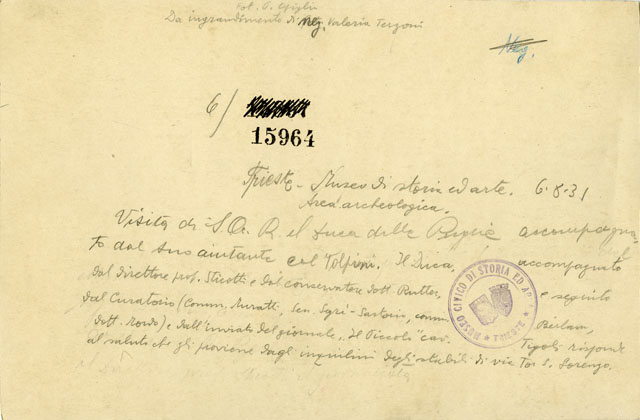 Da ingrandimento di Neg. Valeria Terzoni
Neg.
6/
15964
Trieste - Museo di storia ed arte. 6-8-31
Area archeologica.
Visita di S.A.R. il Duca delle Puglie accompagna-
to dal suo aiutante col. Volpini. Il Duca, accompagnato
dal direttore prof. Sticotti e dal conservatore dott. Rutter, e seguito
dal Curatorio (Comm. Muratti, Sen. Segrè-Sartorio, comm.
dott. Mordo) e dall'inviato del giornale "Il Piccolo" cav.
Tigoli risponde
al saluto che gli proviene dagli inquilini degli stabili di via Tor S. Lorenzo.
MUSEO CIVICO DI STORIA ED ARTE
TRIESTE